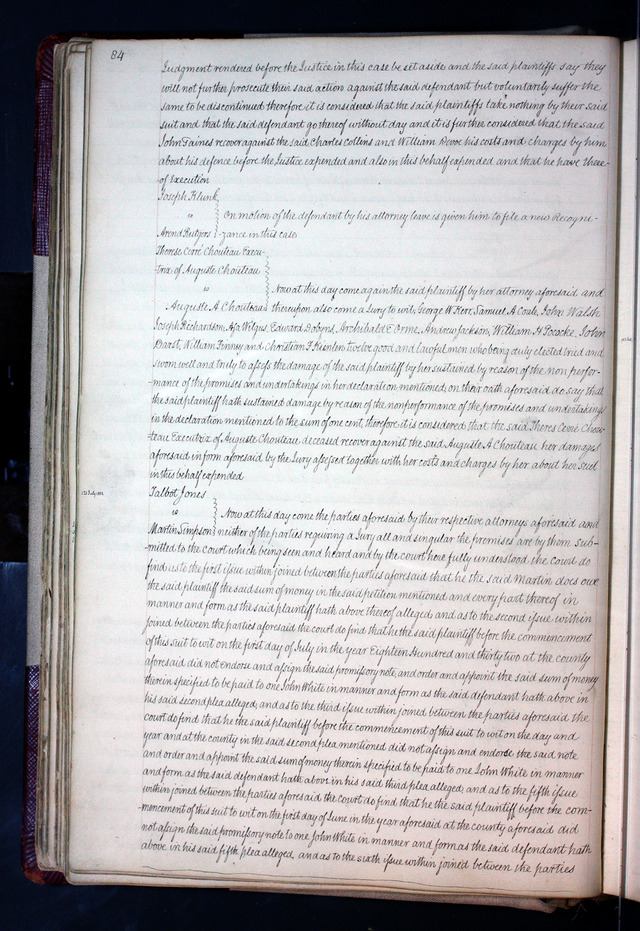 84
Judgment rendered before the Justice in this case be set aside and the said plaintiffs say they
will not further prosecute their said action against the said defendant but voluntarily suffer the
same to be discontinued therefore it is considered that the said plaintiffs take nothing by their said
suit and that the said defendant go thereof without day and it is further considered that the said
John Gaines recover against the said Charles Collins and William Dove his costs and charges by him
about his defence before the Justice expended and also in this behalf expended and that he have there-
of Execution
Joseph Klunk
vs
On motion of the defendant by his attorney leave is given him to file a new Recogni-
Arend Rutgers
zance in this case
Therese Cerré Chouteau Execu-
trix of Auguste Chouteau
vs
Now at this day come again the said plaintiff by her attorney aforesaid and
Auguste A Chouteau
thereupon also come a Jury to wit, George W Kerr, Samuel A Coale, John Walsh
Joseph Richardson, Asa Wilgus, Edward Dobyns, Archibald E Orme, Andrew Jackson, William H Pocacke, John
Darst, William Finney and Christian F Kienlen twelve good and lawful men who being duly elected tried and
sworn well and truly to assess the damage of the said plaintiff by her sustained by reason of the non perfor-
mance of the promises and undertakings in her declaration mentioned, on their oath aforesaid do say that
the said plaintiff hath sustained damage by reason of the nonperformance of the promises and undertakings
in the declaration mentioned to the sum of one cent, therefore it is considered that the said Theres Ceré Chou-
teau Executrix of Auguste Chouteau, deceased recover against the said Auguste A Chouteau her damages
aforesaid in form aforesaid by the Jury assessed together with her costs and charges by her about her suit
in this behalf expended
Talbot Jones
vs
Now at this day come the parties aforesaid by their respective attorneys aforesaid and
Martin Simpson
neither of the parties requiring a Jury all and singular the premises are by them sub-
mitted to the court which being seen and heard and by the court here fully understood the court do
find as to the first issue within joined between the parties aforesaid that he the said Martin does owe
the said plaintiff the said sum of money in the said petition mentioned and every part thereof in
manner and form as the said plaintiff hath above thereof alleged, and as to the second issue within
joined between the parties aforesaid the court do find that he the said plaintiff before the commencement
of this suit to wit on the first day of July in the year Eighteen Hundred and thirty two at the county
aforesaid did not endorse and assign the said promissory note, and order and appoint the said sum of money
therein specified to be paid to one John White in manner and form as the said defendant hath above in
his said second plea alleged, and as to the third issue within joined between the parties aforesaid the
court do find that he the said plaintiff before the commencement of this suit to wit on the day and
year and at the county in the said second plea mentioned did not assign and endorse the said note
and order and appoint the said sum of money therein specified to be paid to one John White in manner
and form as the said defendant hath above in his said third plea alleged; and as to the fifth issue
within joined between the parties aforesaid the court do find that he the said plaintiff before the com-
mencement of this suit to wit on the first day of June in the year aforesaid at the county aforesaid did
not assign the said promissory note to one John White in manner and form as the said defendant hath
above in his said fifth plea alleged, and as to the sixth issue within joined between the parties